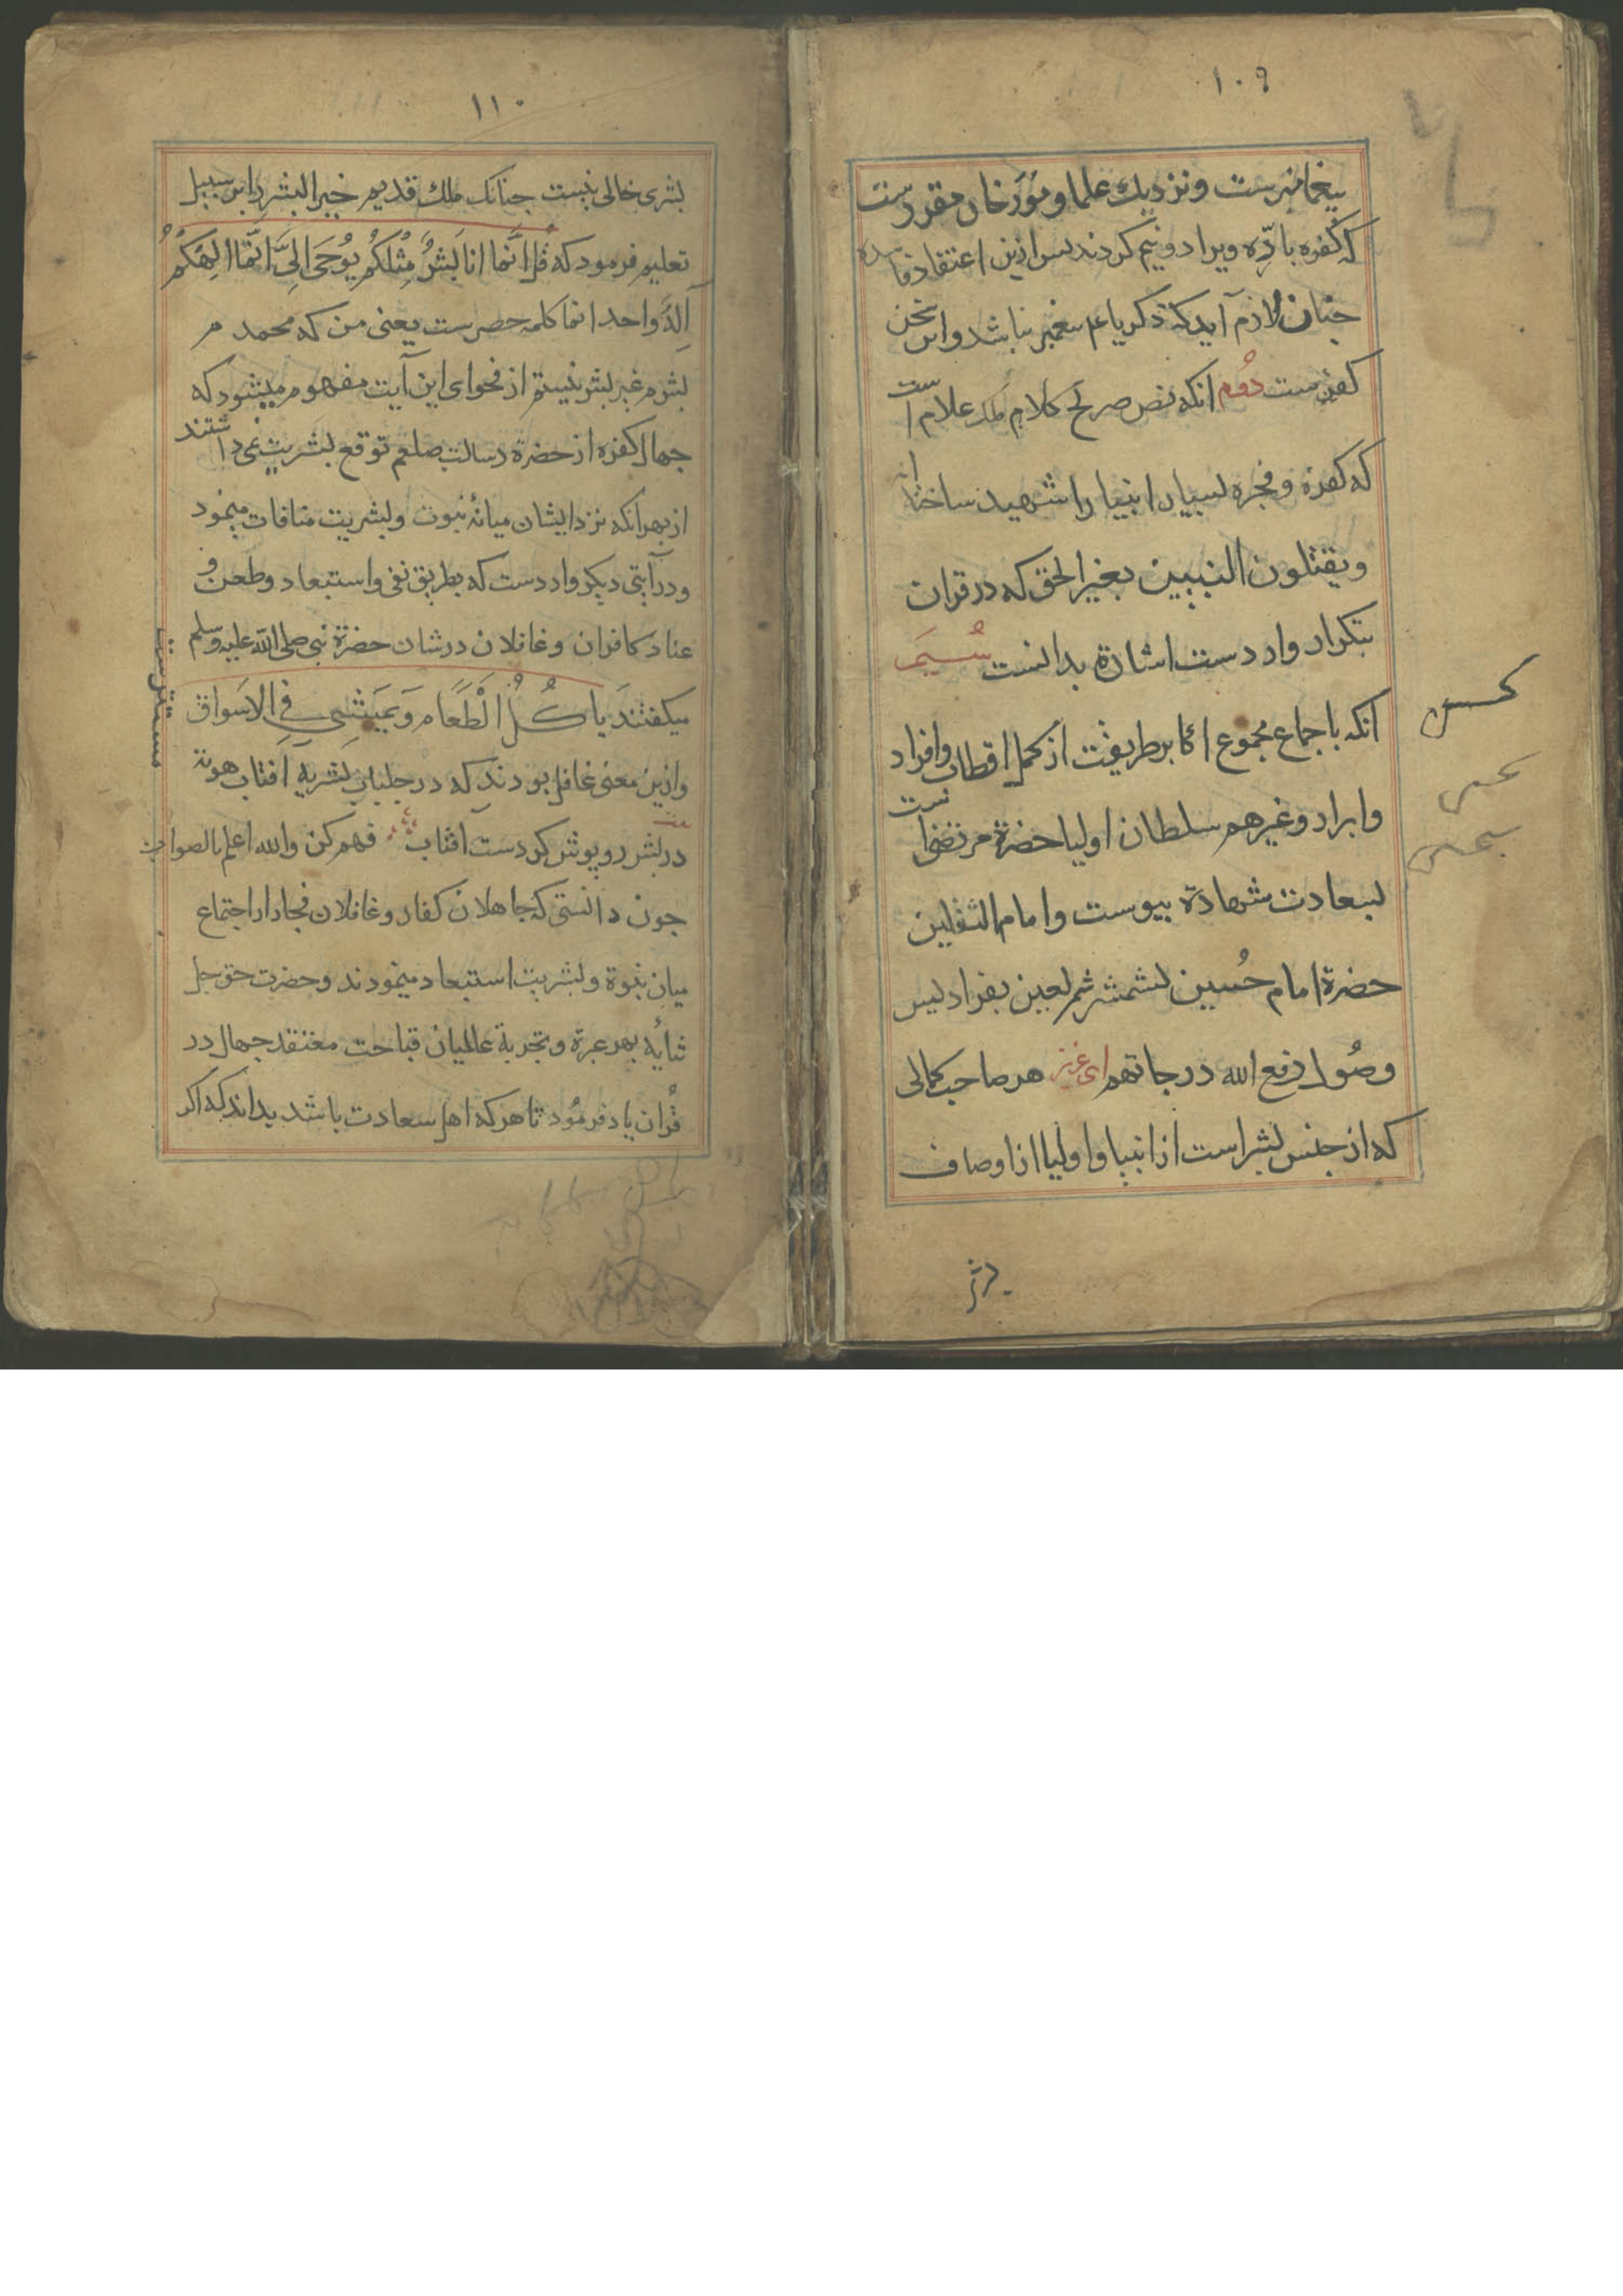 ۱۰۹
پیغامبرست ونزدیك علما ومورخان مقررست
که کفره باره ویرا دونیم کردند پس ازین اعتقاد فاسده
چنان لازم آید که ذکریا عم پیغمبر نباشد واین سخن
کفرست دوم انکه نص صریح کلام ملك علام است
که کفره وفجره بسیار انبیا را شهید ساخته اند
ویقتلون النبیین بغیر الحق که در قران
بتکرار وارد دست اشارة بدانست سیم
انکه باجماع مجموع اکابر طریقت از کمل اقطاب وافراد
وابرار وغیرهم سلطان اولیا حضرة مرتضی است
بسعادت شهادة پیوست وامام الثقلین
حضرة امام حسین بشمشیر شمر لعین بفرادیس
وصول رفع الله درجاتهم ای عزیز هر صاحب کمالی
که از جنس بشر است از انبیا واولیا از اوصاف
بشر
۱۱۰
بشری خالی نیست چنانک ملك قدیم خیر البشر را برین سبیل
تعلیم فرمود که قُل اِنَّما انا بَشَرٌ مِثْلُکُمْ یُوحَی اِلَیَّ اَنَّمَا اِلٰهُکُمْ
اِلٰهٌ واحد انما کلمه حصرست یعنی من که محمدم
بشرم غیر بشر نیستم از فحوای این آیت مفهوم میشود که
جهال کفره از حضرة رسالت صلعم توقع بشریت نمی داشتند
از بهر انکه نزد ایشان میانهٔ نبوت وبشریت منافات مینمود
ودر آیتی دیکر وارد دست که بطریق نفی واستبعاد وطعن و
عناد کافران وغافلان در شان حضرة نبی صلی الله علیه وسلم
میکفتند یاکُلُ الْطَّعَام وَیَمْشِی فِی الاَسواق
وازین معنی غافل بودند که در جلباب بشریه افتاب هویة مستترست
در بشر روپوش کردست آفتاب فهم کن والله اعلم بالصواب
چون دانستی که جاهلان کفار وغافلان فجار از اجتماع
میان نبوة وبشریت استبعاد مینمودند وحضرت حق جل
ثنایه بهر عبرة وتجربة عالمیان قباحت معتقد جهال در
قُران یاد فرمُود تا هر که اهل سعادت باشد بداند که اکر